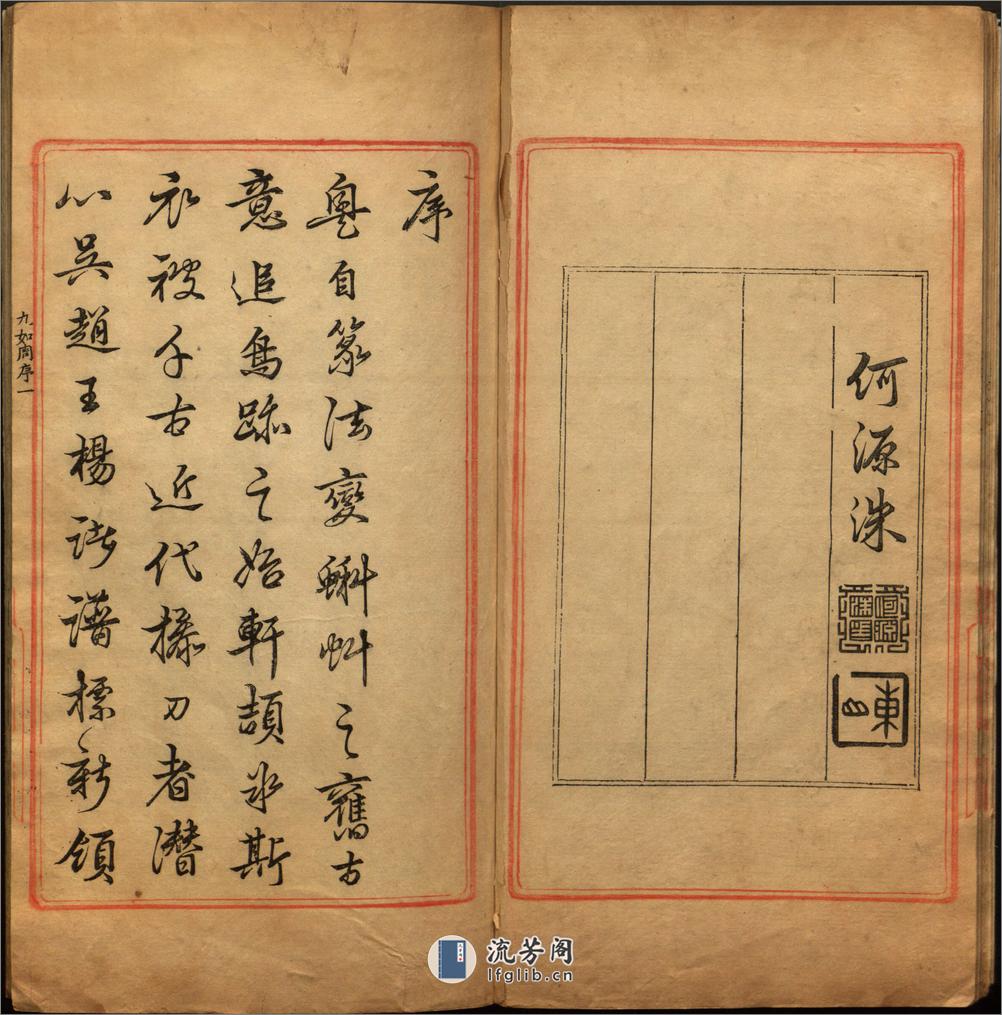 何源洙
東山
序
粤自篆法變蝌蚪之舊古
意追鳥跡之始軒頡氷斯
衣被千古近代操刀者潛
心吴趙王楊諸譜標新領
九如圖序一
流芳阁
lfglib.cn